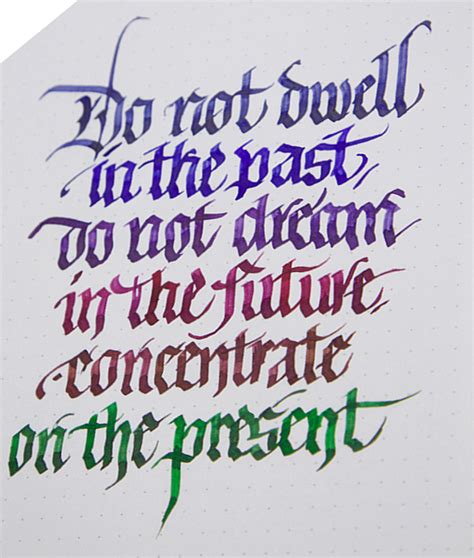 Do not dwell
in the past,
do not dream
in the future,
concentrate
on the present